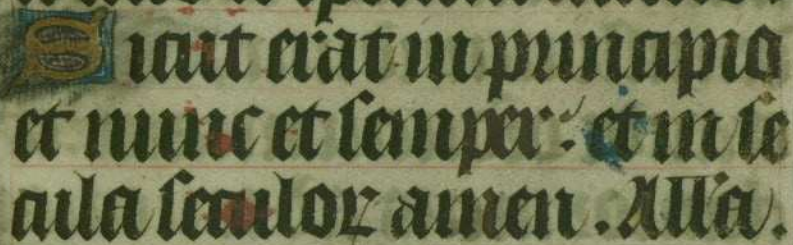 Sicut erat in principio
et nunc et semper. et in se
cula seculoꝝ amen. All'a.